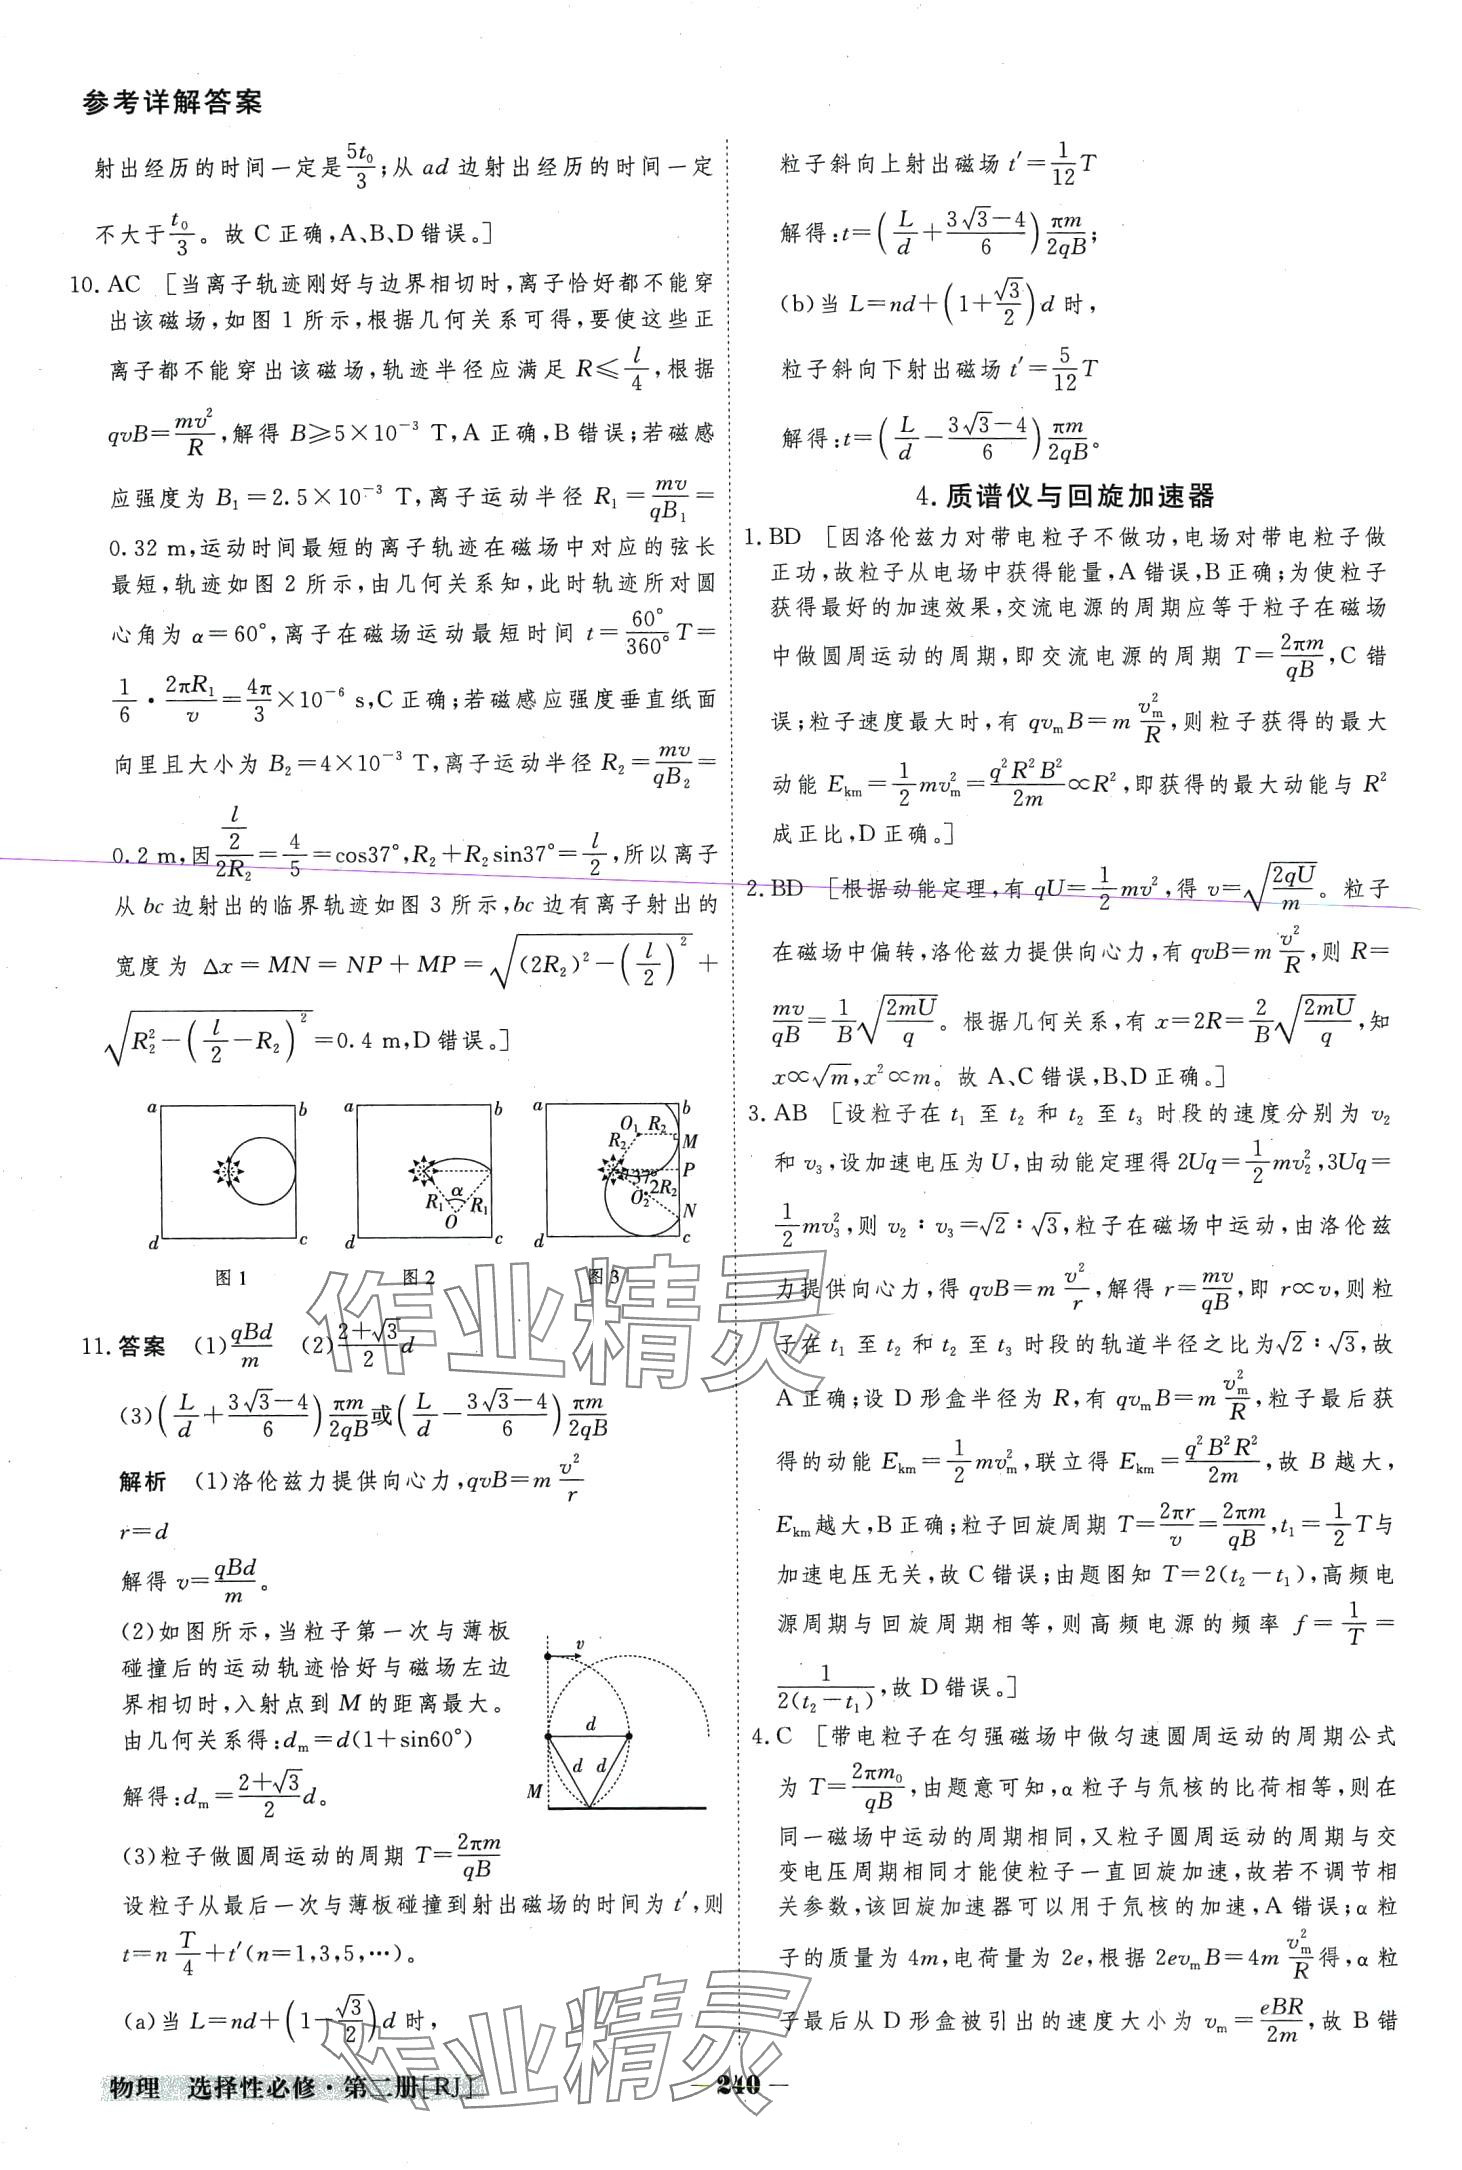 参考详解答案
射出经历的时间一定是5t₀/3;从 ad 边射出经历的时间一定
不大于t₀/3。故 C 正确,A、B、D 错误。]
10. AC [当离子轨迹刚好与边界相切时,离子恰好都不能穿
出该磁场,如图 1 所示,根据几何关系可得,要使这些正
离子都不能穿出该磁场,轨迹半径应满足 R≤l/4,根据
qvB=mv²/R,解得 B≥5×10⁻³ T,A 正确,B 错误;若磁感
应强度为 B₁=2.5×10⁻³ T,离子运动半径 R₁=mv/qB₁=
0.32 m,运动时间最短的离子轨迹在磁场中对应的弦长
最短,轨迹如图 2 所示,由几何关系知,此时轨迹所对圆
心角为 α=60°,离子在磁场运动最短时间 t=60°/360°T=
1/6·2πR₁/v=4π/3×10⁻⁶ s,C 正确;若磁感应强度垂直纸面
向里且大小为 B₂=4×10⁻³ T,离子运动半径 R₂=mv/qB₂=
0.2 m,因(l/2)/2R₂=4/5=cos37°,R₂+R₂sin37°=l/2,所以离子
从 bc 边射出的临界轨迹如图 3 所示,bc 边有离子射出的
宽度为 Δx=MN=NP+MP=√((2R₂)²-(l/2)²)+
√(R₂²-(l/2-R₂)²)=0.4 m,D 错误。]
a b d c
a b R₁ α R₁ O d c
a b O₁ R₂ M R₂ P 37° 2R₂ O₂ N d c
图 1 图 2 图 3
11. 答案 (1)qBd/m (2)(2+√3)/2 d
(3)(L/d+(3√3-4)/6)πm/2qB或(L/d-(3√3-4)/6)πm/2qB
解析 (1)洛伦兹力提供向心力,qvB=m v²/r
r=d
解得 v=qBd/m。
(2)如图所示,当粒子第一次与薄板
碰撞后的运动轨迹恰好与磁场左边
界相切时,入射点到 M 的距离最大。
由几何关系得:dₘ=d(1+sin60°)
解得:dₘ=(2+√3)/2 d。
v
d
d d
M
(3)粒子做圆周运动的周期 T=2πm/qB
设粒子从最后一次与薄板碰撞到射出磁场的时间为 t′,则
t=n T/4+t′(n=1,3,5,…)。
(a)当 L=nd+(1-√3/2)d 时,
粒子斜向上射出磁场 t′=1/12 T
解得:t=(L/d+(3√3-4)/6)πm/2qB;
(b)当 L=nd+(1+√3/2)d 时,
粒子斜向下射出磁场 t′=5/12 T
解得:t=(L/d-(3√3-4)/6)πm/2qB。
4. 质谱仪与回旋加速器
1. BD [因洛伦兹力对带电粒子不做功,电场对带电粒子做
正功,故粒子从电场中获得能量,A 错误,B 正确;为使粒子
获得最好的加速效果,交流电源的周期应等于粒子在磁场
中做圆周运动的周期,即交流电源的周期 T=2πm/qB,C 错
误;粒子速度最大时,有 qvₘB=m vₘ²/R,则粒子获得的最大
动能 Eₖₘ=1/2 mvₘ²=q²R²B²/2m∝R²,即获得的最大动能与 R²
成正比,D 正确。]
2. BD [根据动能定理,有 qU=1/2 mv²,得 v=√(2qU/m)。粒子
在磁场中偏转,洛伦兹力提供向心力,有 qvB=m v²/R,则 R=
mv/qB=1/B √(2mU/q)。根据几何关系,有 x=2R=2/B √(2mU/q),知
x∝√m,x²∝m。故 A、C 错误,B、D 正确。]
3. AB [设粒子在 t₁ 至 t₂ 和 t₂ 至 t₃ 时段的速度分别为 v₂
和 v₃,设加速电压为 U,由动能定理得 2Uq=1/2 mv₂²,3Uq=
1/2 mv₃²,则 v₂∶v₃=√2∶√3,粒子在磁场中运动,由洛伦兹
力提供向心力,得 qvB=m v²/r,解得 r=mv/qB,即 r∝v,则粒
子在 t₁ 至 t₂ 和 t₂ 至 t₃ 时段的轨道半径之比为√2∶√3,故
A 正确;设 D 形盒半径为 R,有 qvₘB=m vₘ²/R,粒子最后获
得的动能 Eₖₘ=1/2 mvₘ²,联立得 Eₖₘ=q²B²R²/2m,故 B 越大,
Eₖₘ越大,B 正确;粒子回旋周期 T=2πr/v=2πm/qB,t₁=1/2 T与
加速电压无关,故 C 错误;由题图知 T=2(t₂-t₁),高频电
源周期与回旋周期相等,则高频电源的频率 f=1/T=
1/2(t₂-t₁),故 D 错误。]
4. C [带电粒子在匀强磁场中做匀速圆周运动的周期公式
为 T=2πm₀/qB,由题意可知,α粒子与氘核的比荷相等,则在
同一磁场中运动的周期相同,又粒子圆周运动的周期与交
变电压周期相同才能使粒子一直回旋加速,故若不调节相
关参数,该回旋加速器可以用于氘核的加速,A 错误;α粒
子的质量为 4m,电荷量为 2e,根据 2evₘB=4m vₘ²/R得,α粒
子最后从 D 形盒被引出的速度大小为 vₘ=eBR/2m,故 B 错
作业精灵
作业精灵
物理 选择性必修·第二册[RJ]
— 240 —